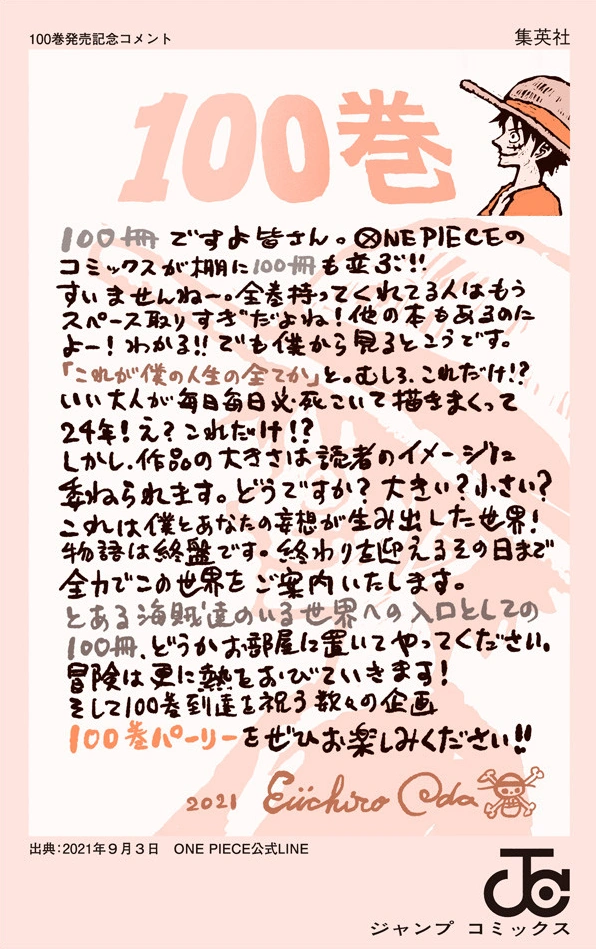 100巻発売記念コメント
集英社
100巻
100冊ですよ皆さん。ONE PIECEの
コミックスが棚に100冊も並ぶ!!
すいませんねー。全巻持ってくれてる人はもう
スペース取りすぎだよね!他の本もあるのに
よー!わかる!!でも僕から見るとこうです。
「これが僕の人生の全てか」と。むしろ、これだけ!?
いい大人が毎日毎日必死こいて描きまくって
24年!え?これだけ!?
しかし、作品の大きさは読者のイメージに
委ねられます。どうですか?大きい?小さい?
これは僕とあなたの妄想が生み出した世界!
物語は終盤です。終わりを迎えるその日まで
全力でこの世界をご案内いたします。
とある海賊達のいる世界への入口としての
100冊、どうかお部屋に置いてやってください。
冒険は更に熱をおびていきます!
そして100巻到達を祝う数々の企画
100巻パーリーをぜひお楽しみください!!
2021 Eiichiro Oda
出典:2021年9月3日 ONE PIECE公式LINE
JC
ジャンプ コミックス